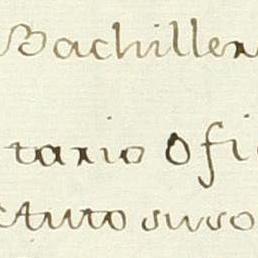 Bachiller
tario Ofi
Auto suso